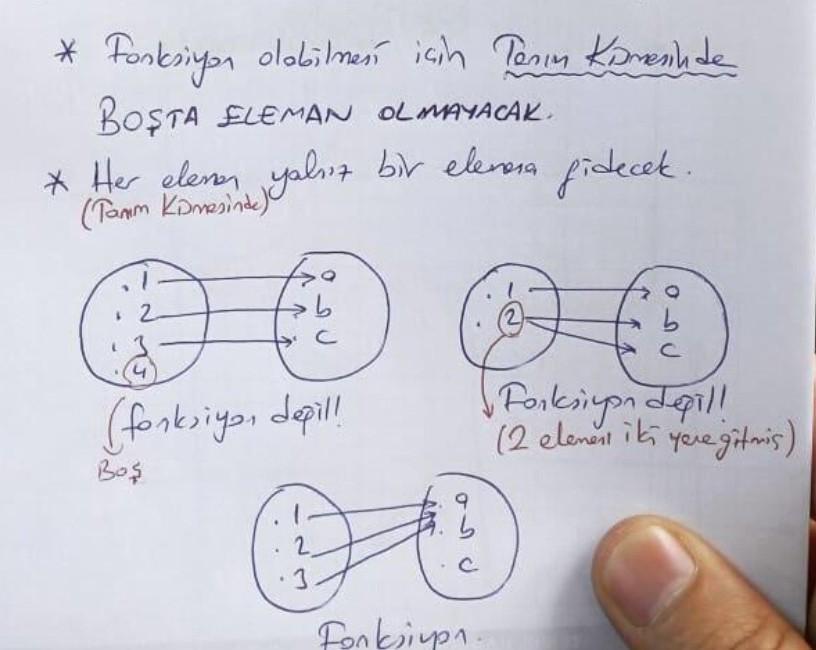 * Fonksiyon olabilmesi için Tanım Kümesinde
BOŞTA ELEMAN OLMAYACAK.
* Her eleman yalnız bir elemana gidecek.
(Tanım Kümesinde)
. 1
. 2
. 3
. 4
a
b
c
fonksiyon değil!
Boş
. 1
. 2
a
b
c
Fonksiyon değil!
(2 elemanı iki yere gitmiş)
. 1
. 2
. 3
. a
. b
. c
Fonksiyon.